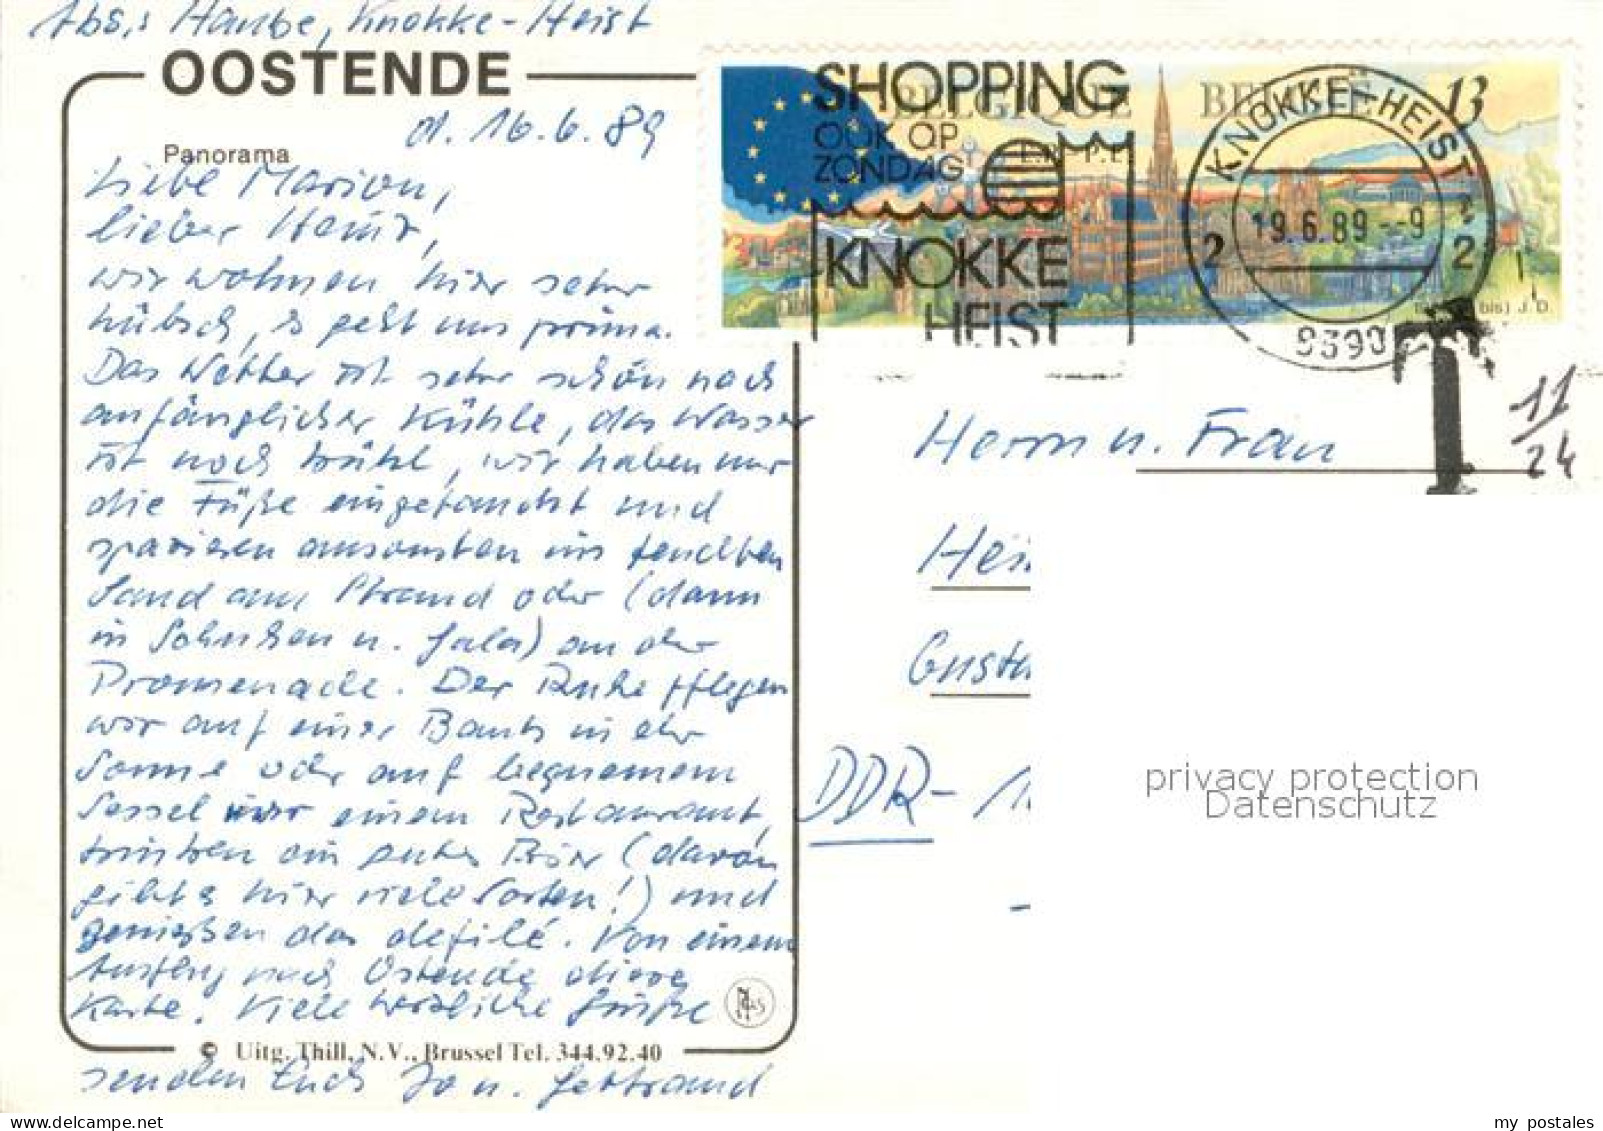 Abs.: Haube, Knokke-Heist
OOSTENDE
d. 16.6.89
Panorama
Liebe Marion,
lieber Heinz,
wir wohnen hier sehr
hübsch, es geht uns prima.
Das Wetter ist sehr schön nach
anfänglicher Kühle, das Wasser
ist noch kühl, wir haben nur
die Füße eingetaucht und
spazieren ansonsten im feuchten
Sand am Strand oder (dann
in Schuhen u. Gala) an der
Promenade. Der Ruhe pflegen
wir auf einer Bank in der
Sonne oder auf bequemem
Sessel vor einem Restaurant,
trinken ein gutes Bier (davon
gibt's hier viele Sorten!) und
genießen das defilé. Von einem
Ausflug nach Ostende diese
Karte. Viele herzliche Grüße
© Uitg. Thill, N.V., Brussel Tel. 344.92.40
senden Euch Jo u. Gertraud
SHOPPING
OOK OP
ZONDAG
KNOKKE
HEIST
BELGIQUE
BELGIË
13
E.P. - P.E.
KNOKKE-HEIST
2
19.6.89--9
2
8390
J.D.
T
11/24
Herrn u. Frau
Hei
Gusta
DDR - 1
privacy protection
Datenschutz
my postales